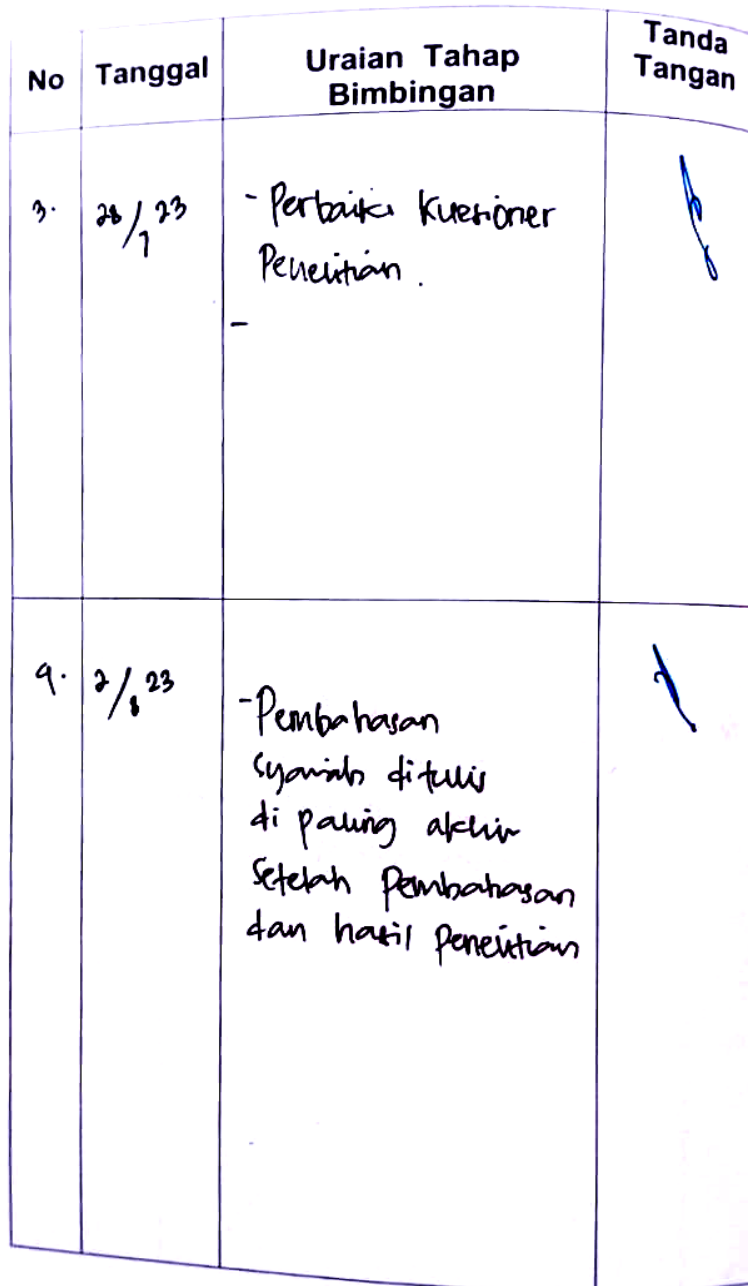 No Tanggal Uraian Tahap Tanda
Bimbingan Tangan
3. 28/7 23 - Perbaiki Kuesioner
Penelitian.
-
4. 2/8 23
- Pembahasan
Syariah ditulis
di paling akhir
Setelah Pembahasan
dan hasil Penelitian